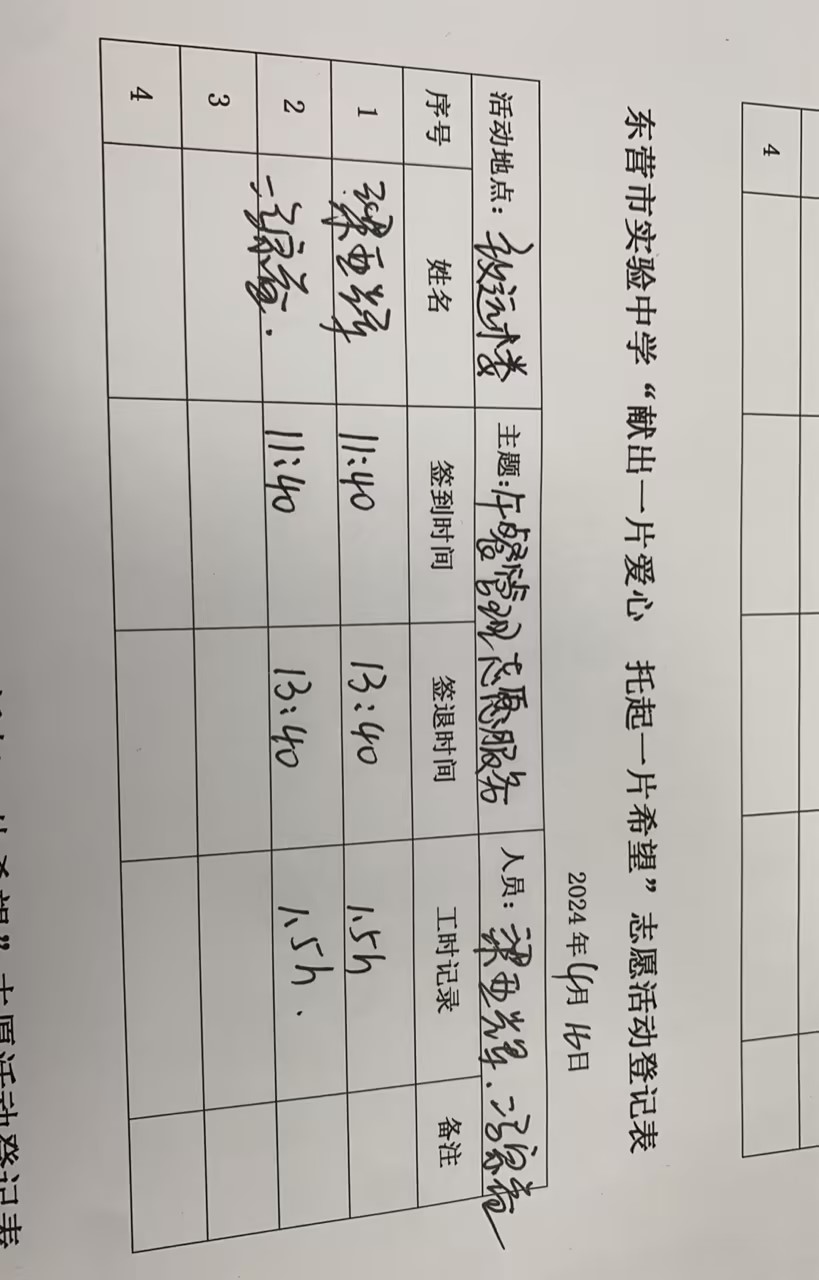 4
东营市实验中学“献出一片爱心 托起一片希望”志愿活动登记表
2024年4月16日
活动地点： 主题：午餐管理志愿服务 人员：梁亚辉．
序号 姓名 签到时间 签退时间 工时记录 备注
1 梁亚辉 11:40 13:40 1.5h
2 11:40 13:40 1.5h．
3
4
片希望”志愿活动登记表